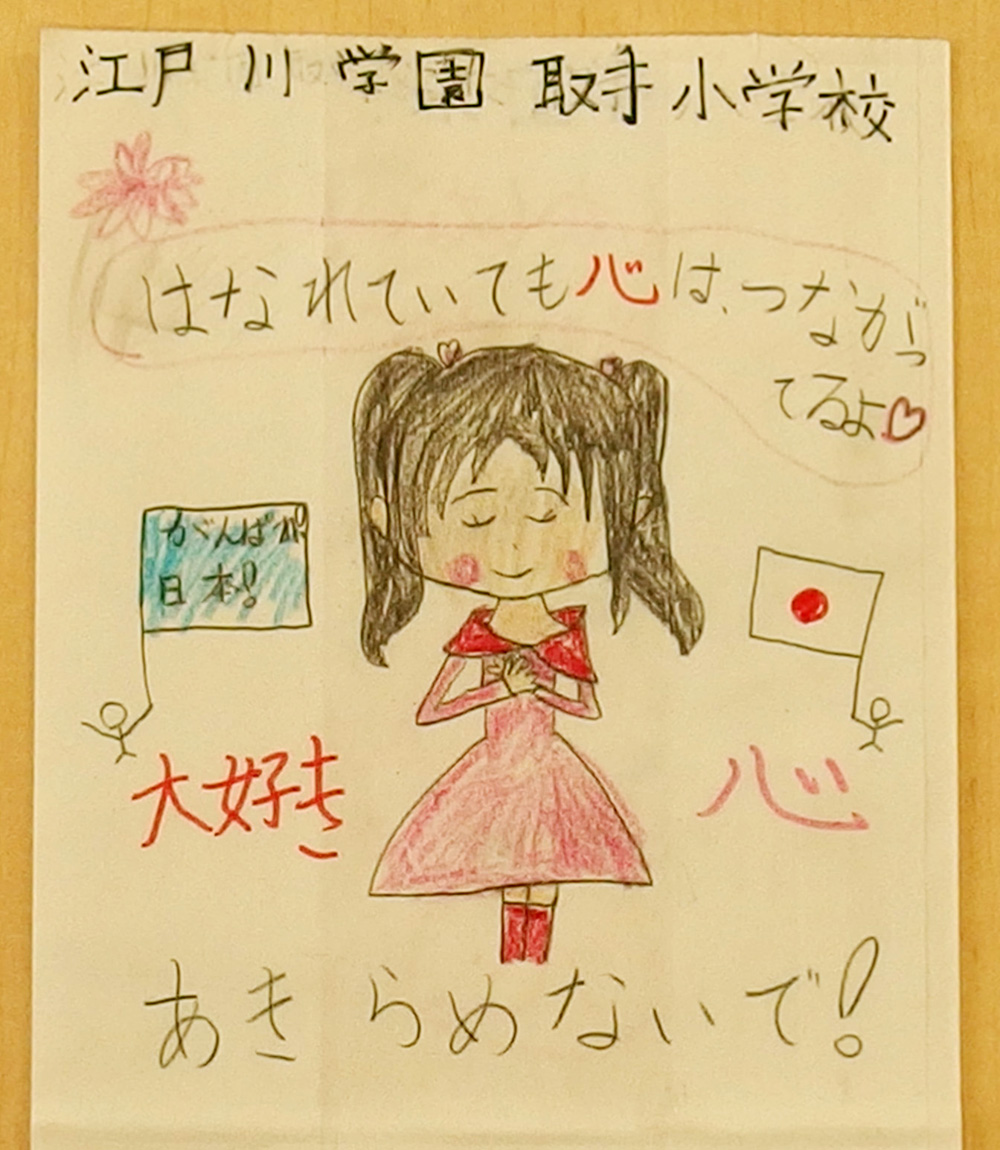 江戸川学園取手小学校
はなれていても心は、つながっ
てるよ♡
がんばれ!
日本!
大好き
心
あきらめないで!